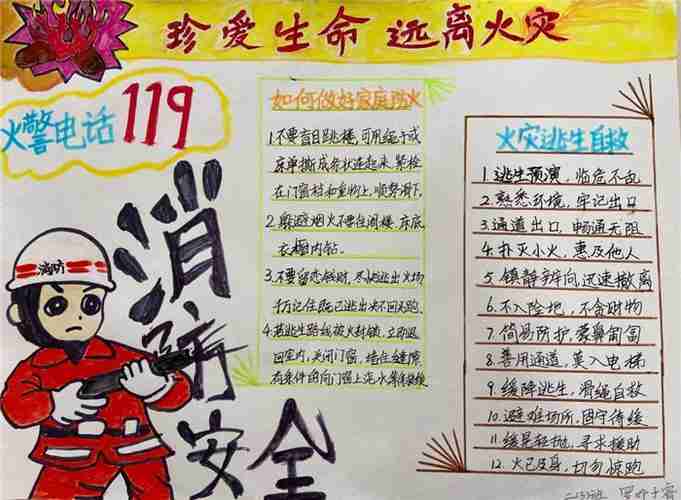 珍爱生命 远离火灾
火警电话119
消防安全
消防
如何做好家庭防火
1.不要盲目跳楼,可用绳子或
床单撕成条状连起来,紧栓
在门窗档和重物上,顺势滑下.
2.躲避烟火不要往阁楼、床底
衣橱内钻.
3.不要留恋钱财,尽快逃出火场
千万记住既已逃出火不回不跑.
4.若逃生路线被火封锁,立即退
回室内,关闭门窗,堵住缝隙,
有条件的向门窗上浇水等待救援
火灾逃生自救
1.逃生预演,临危不乱
2.熟悉环境,牢记出口
3.通道出口,畅通无阻
4.扑灭小火,惠及他人
5.镇静辨向,迅速撤离
6.不入险地,不贪财物
7.简易防护,蒙鼻匍匐
8.善用通道,莫入电梯
9.缓降逃生,滑绳自救
10.避难场所,固守待援
11.缓晃轻抛,寻求援助
12.火已及身,切勿惊跑